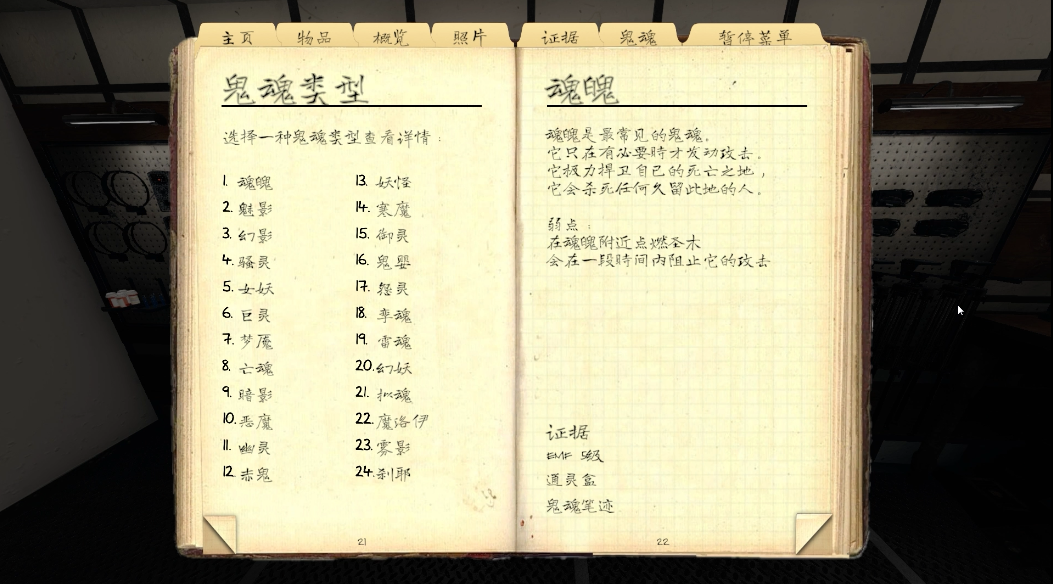 主页 物品 概览 照片 证据 鬼魂 暂停菜单
鬼魂类型
选择一种鬼魂类型查看详情：
1. 魂魄
2. 魅影
3. 幻影
4. 骚灵
5. 女妖
6. 巨灵
7. 梦魇
8. 亡魂
9. 暗影
10. 恶魔
11. 幽灵
12 赤鬼
13. 妖怪
14. 寒魔
15. 御灵
16. 鬼婴
17. 怨灵
18. 孪魂
19. 雷魂
20. 幻妖
21. 拟魂
22. 魔洛伊
23. 雾影
24. 刹耶
21
魂魄
魂魄是最常见的鬼魂。
它只在有必要時才发动攻击。
它极力捍卫自己的死亡之地，
它会杀死任何久留此地的人。
弱点：
在魂魄附近点燃圣木
会在一段時间内阻止它的攻击
证据
EMF 5级
通灵盒
鬼魂笔迹
22